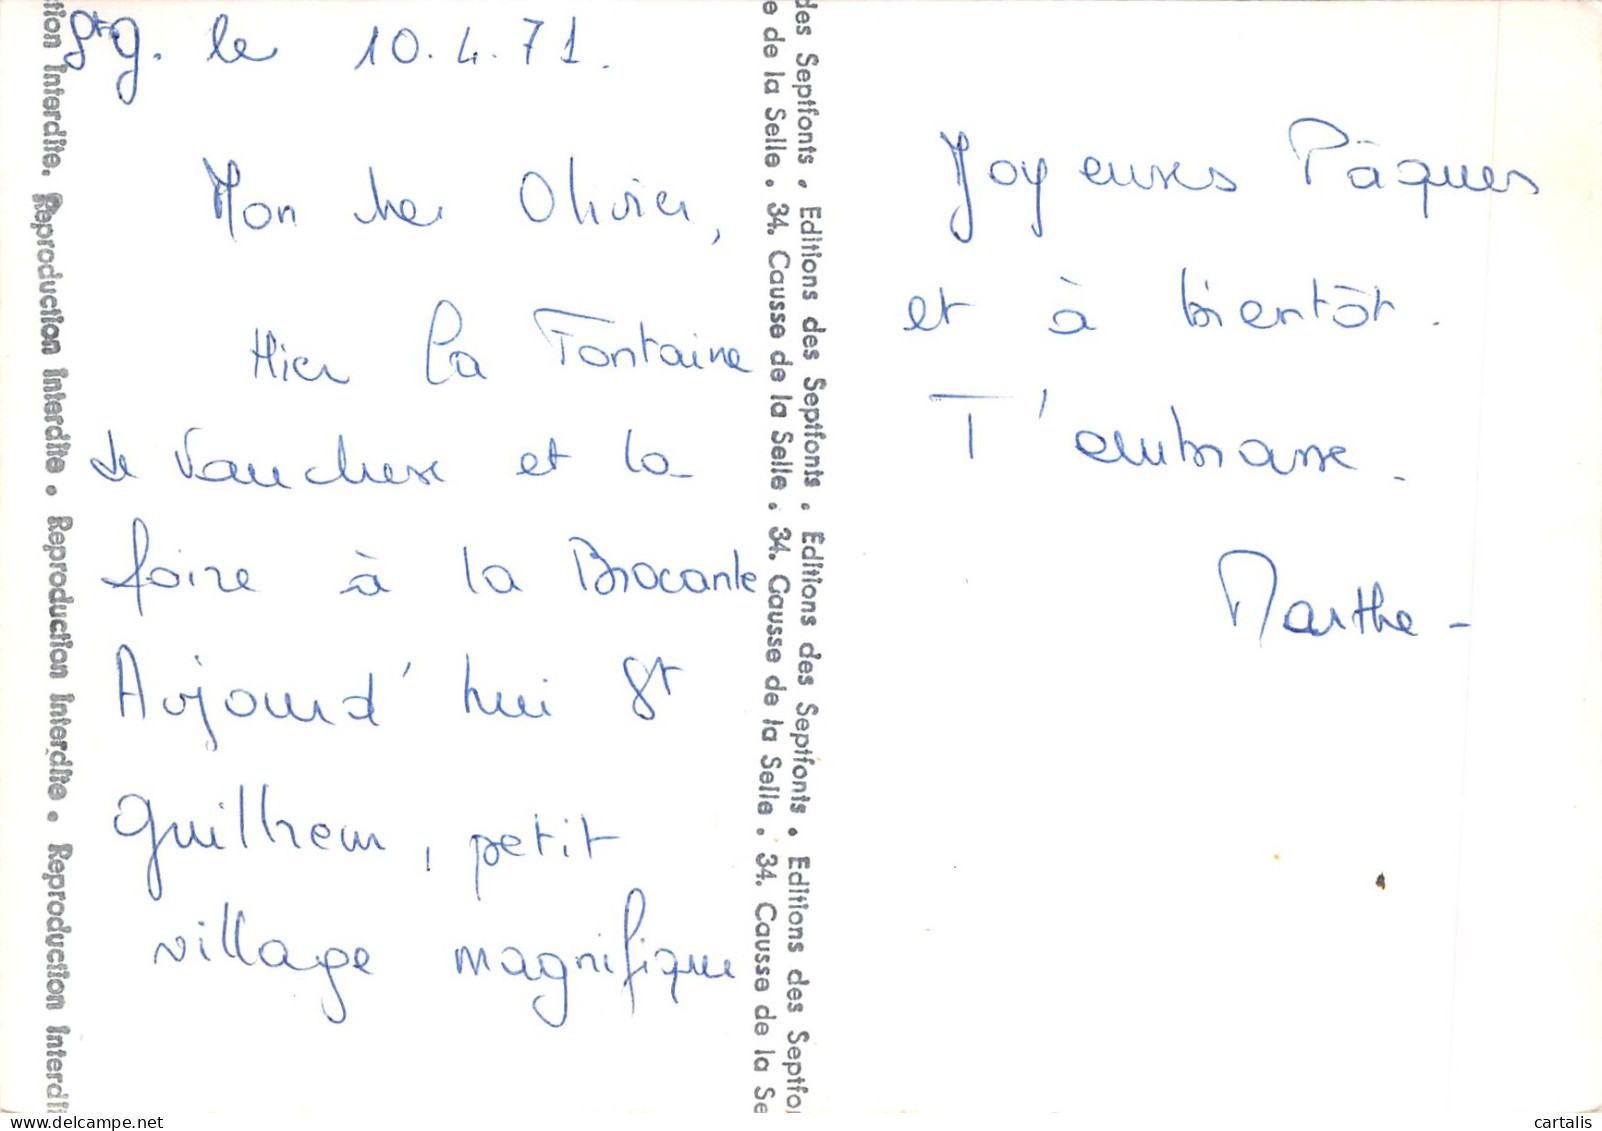 St g. le 10.4.71.
Mon cher Olivier,
Hier la Fontaine
de Vaucluse et la
foire à la Brocante
Aujourd'hui St
Guilhem, petit
village magnifique
Joyeuses Pâques
et à bientôt.
T'embrasse.
Marthe -
tion Interdite. Reproduction Interdite • Reproduction Interdite • Reproduction Interdi
des Septfonts • Editions des Septfonts • Editions des Septfonts • Editions des Septfo
e de la Selle • 34. Causse de la Selle • 34. Causse de la Selle • 34. Causse de la Se
cartalis